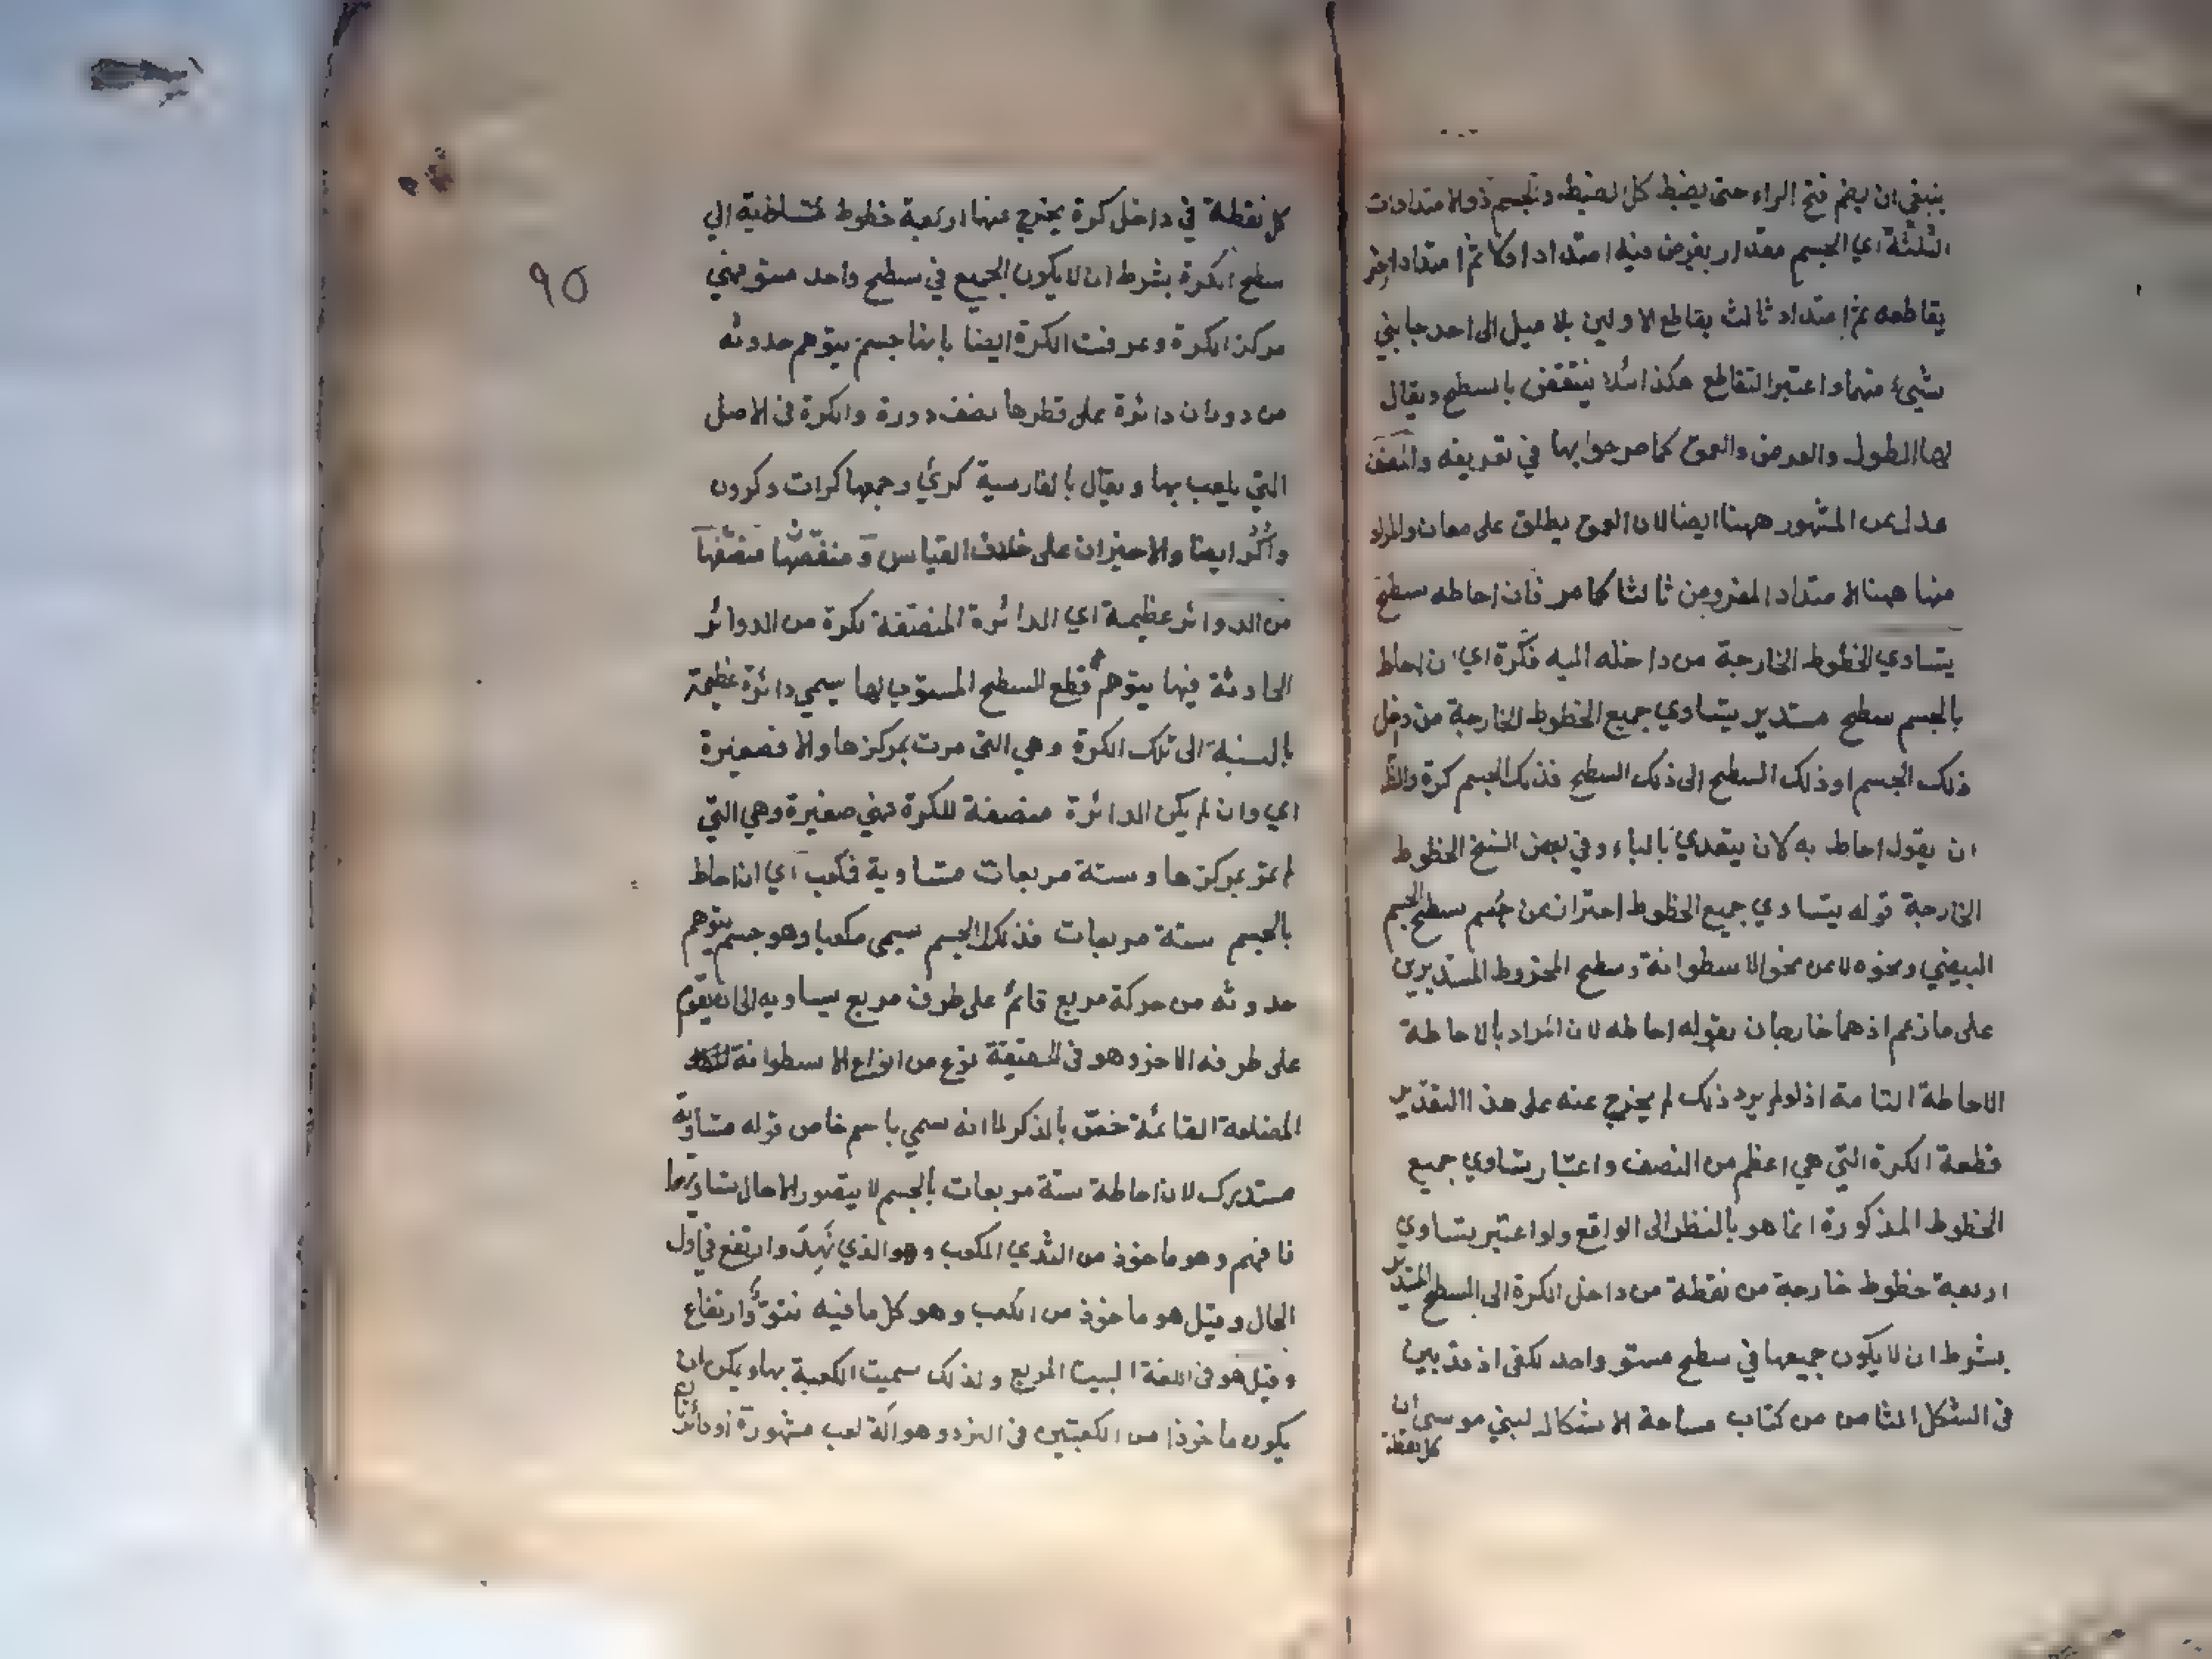 ينبغي ان يضم فتح الراء حتى يضبط كل الضبط والجسم ذو الامتدادات
الثلثة اي الجسم مقدار يفرض فيه امتداد اولا ثم امتداد اخر
يقاطعه ثم امتداد ثالث يقاطع الاولين بلا ميل الى احد جانبي
شيئ منهما واعتبر التقاطع هكذا لئلا ينتقض بالسطح ويقال
لها الطول والعرض والعمق كما صرحوا بها في تعريفه والمصنف
عدل عن المشهور ههنا ايضا لان العمق يطلق على معان والمراد
منها ههنا الامتداد المفروض ثالثا كما مر فان احاطه سطح
يتساوي الخطوط الخارجة من داخله اليه فكرة اي ان احاط
بالجسم سطح مستدير يتساوي جميع الخطوط الخارجة من داخل
ذلك الجسم او ذلك السطح الى ذلك السطح فذلك الجسم كرة
ان يقول احاط به لان يتعدي بالباء وفي بعض النسخ الخطوط
الخارجة قوله يتساوي جميع الخطوط احتراز عن جسم سطح الجسم
البيضي ونحوه لا عن نحو الاسطوانة وسطح المخروط المستديرين
على ما زعم اذ هما خارجان بقوله احاطه لان المراد بالاحاطة
الاحاطة التامة اذ لو لم يرد ذلك لم يخرج عنه على هذا التقدير
قطعة الكرة التي هي اعظم من النصف واعتبار يتساوي جميع
الخطوط المذكورة انما هو بالنظر الى الواقع ولو اعتبر يتساوي
اربعة خطوط خارجة من نقطة من داخل الكرة الى السطح المستدير
بشرط ان لا يكون جميعها في سطح مستو واحد لكفى اذ قد بين
في الشكل الثامن من كتاب مساحة الاشكال لبني موسى ان
كل نقطة
٩٥
كل نقطة في داخل كرة يخرج عنها اربعة خطوط الي
سطح الكرة بشرط ان لا يكون الجميع في سطح واحد مستو فهي
مركز الكرة وعرفت الكرة ايضا بانها جسم يتوهم حدوثه
من دوران دائرة على قطرها نصف دورة والكرة في الاصل
التي يلعب بها ويقال بالفارسية كوي وجمعها كرات وكرون
واكر ايضا والاخيران على خلاف القياس و منصفها
من الدوائر عظيمة اي الدائرة المنصفة لكرة من الدوائر
الحادثة فيها بتوهم قطع السطح المستوي لها يسمي دائرة عظيمة
بالنسبة الى تلك الكرة وهي التي مرت بمركزها والا فصغيرة
اي وان لم يكن الدائرة منصفة للكرة فهي صغيرة وهي التي
لم تمر بمركزها وستة مربعات متساوية فمكعب اي ان احاط
بالجسم ستة مربعات فذلك الجسم يسمى مكعبا وهو جسم يتوهم
حدوثه من حركة مربع قائم على طرف مربع يساويه الى ان يقوم
على طرفه الاخر وهو في الحقيقة نوع من انواع الاسطوانة
المضلعة القائمة خص بالذكر لما انه سمي باسم خاص قوله متساوية
مستدرك لان احاطة ستة مربعات بالجسم لا يتصور الا حال تساويها
فافهم وهو ماخوذ من الثدي المكعب وهو الذي نهد وارتفع في اول
الحال وقيل هو ماخوذ من الكعب وهو كل ما فيه نتوء وارتفاع
وقيل هو في اللغة البيت المربع ولذلك سميت الكعبة بها ويمكن ان
يكون ماخوذا من الكعبتين في النرد وهو آلة لعب مشهورة او